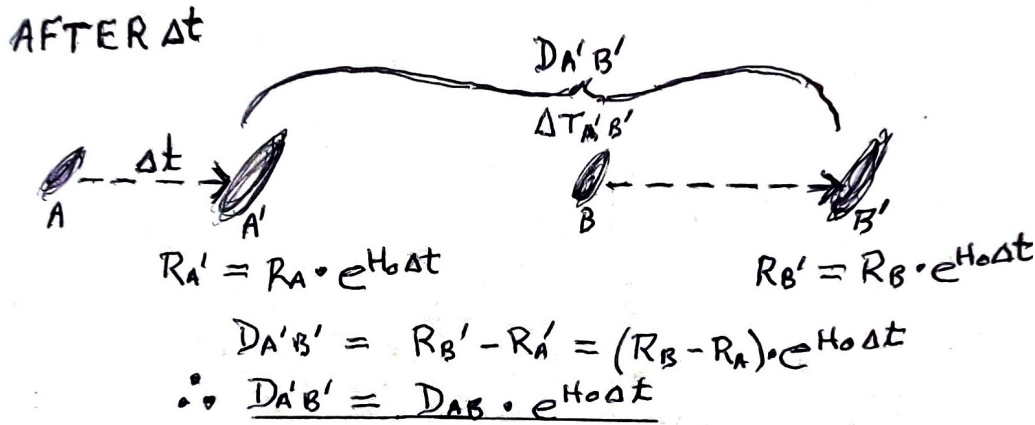 AFTER Δt
DA'B'
ΔTA'B'
Δt
A A' B B'
RA' = RA · e^H₀Δt RB' = RB · e^H₀Δt
DA'B' = RB' - RA' = (RB - RA) · e^H₀Δt
∴ DA'B' = DAB · e^H₀Δt